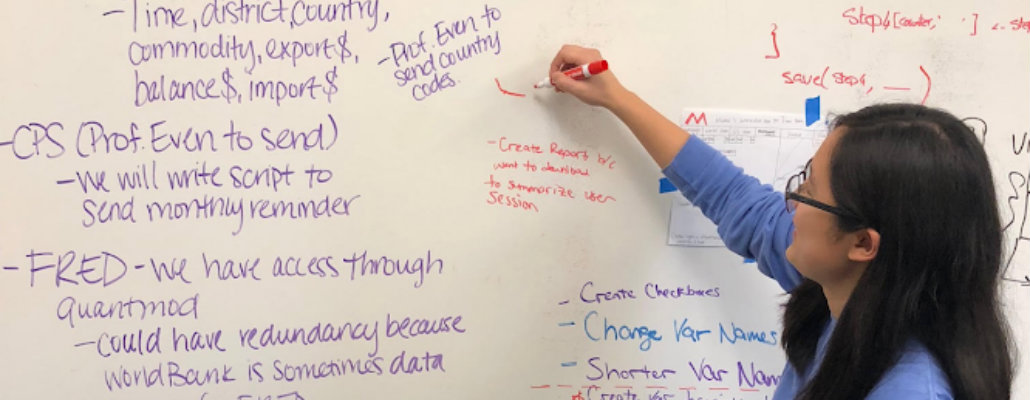 - Time, district, country,
commodity, export $,
balance $, import $
- Prof. Even to
send country
codes.
- CPS (Prof. Even to send)
- We will write script to
send monthly reminder
- FRED - we have access through
quantmod
- could have redundancy because
World Bank is sometimes data
}
save( step4, __ )
- Create Report b/c
want to download
to summarize user
session
- Create Checkboxes
- Change Var Names
- Shorter Var Nam
* Create var